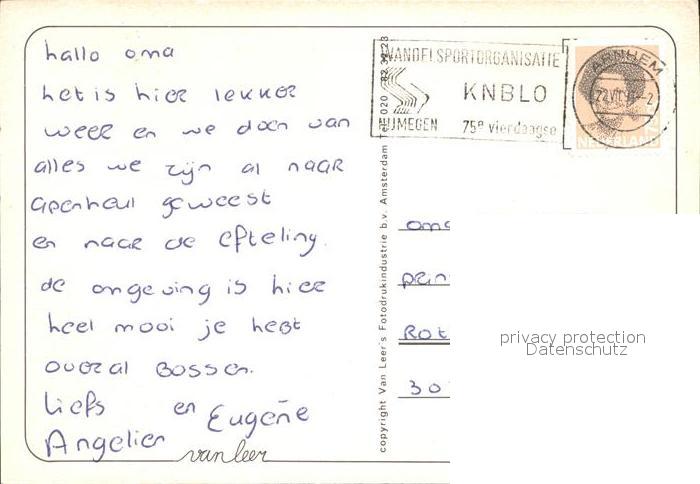 hallo oma
het is hier lekker
weer en we doen van
alles we zijn al naar
apenheul geweest
en naar de Efteling.
de omgeving is hier
heel mooi je hebt
overal Bossen.
Liefs en Eugene
Angelien
van leer
copyright Van Leer's Fotodrukindustrie b.v. Amsterdam Tel. 020
WANDELSPORTORGANISATIE
KNBLO
NIJMEGEN 75e vierdaagse
ARNHEM
NEDERLAND
oma
prin
Rot
30
privacy protection
Datenschutz